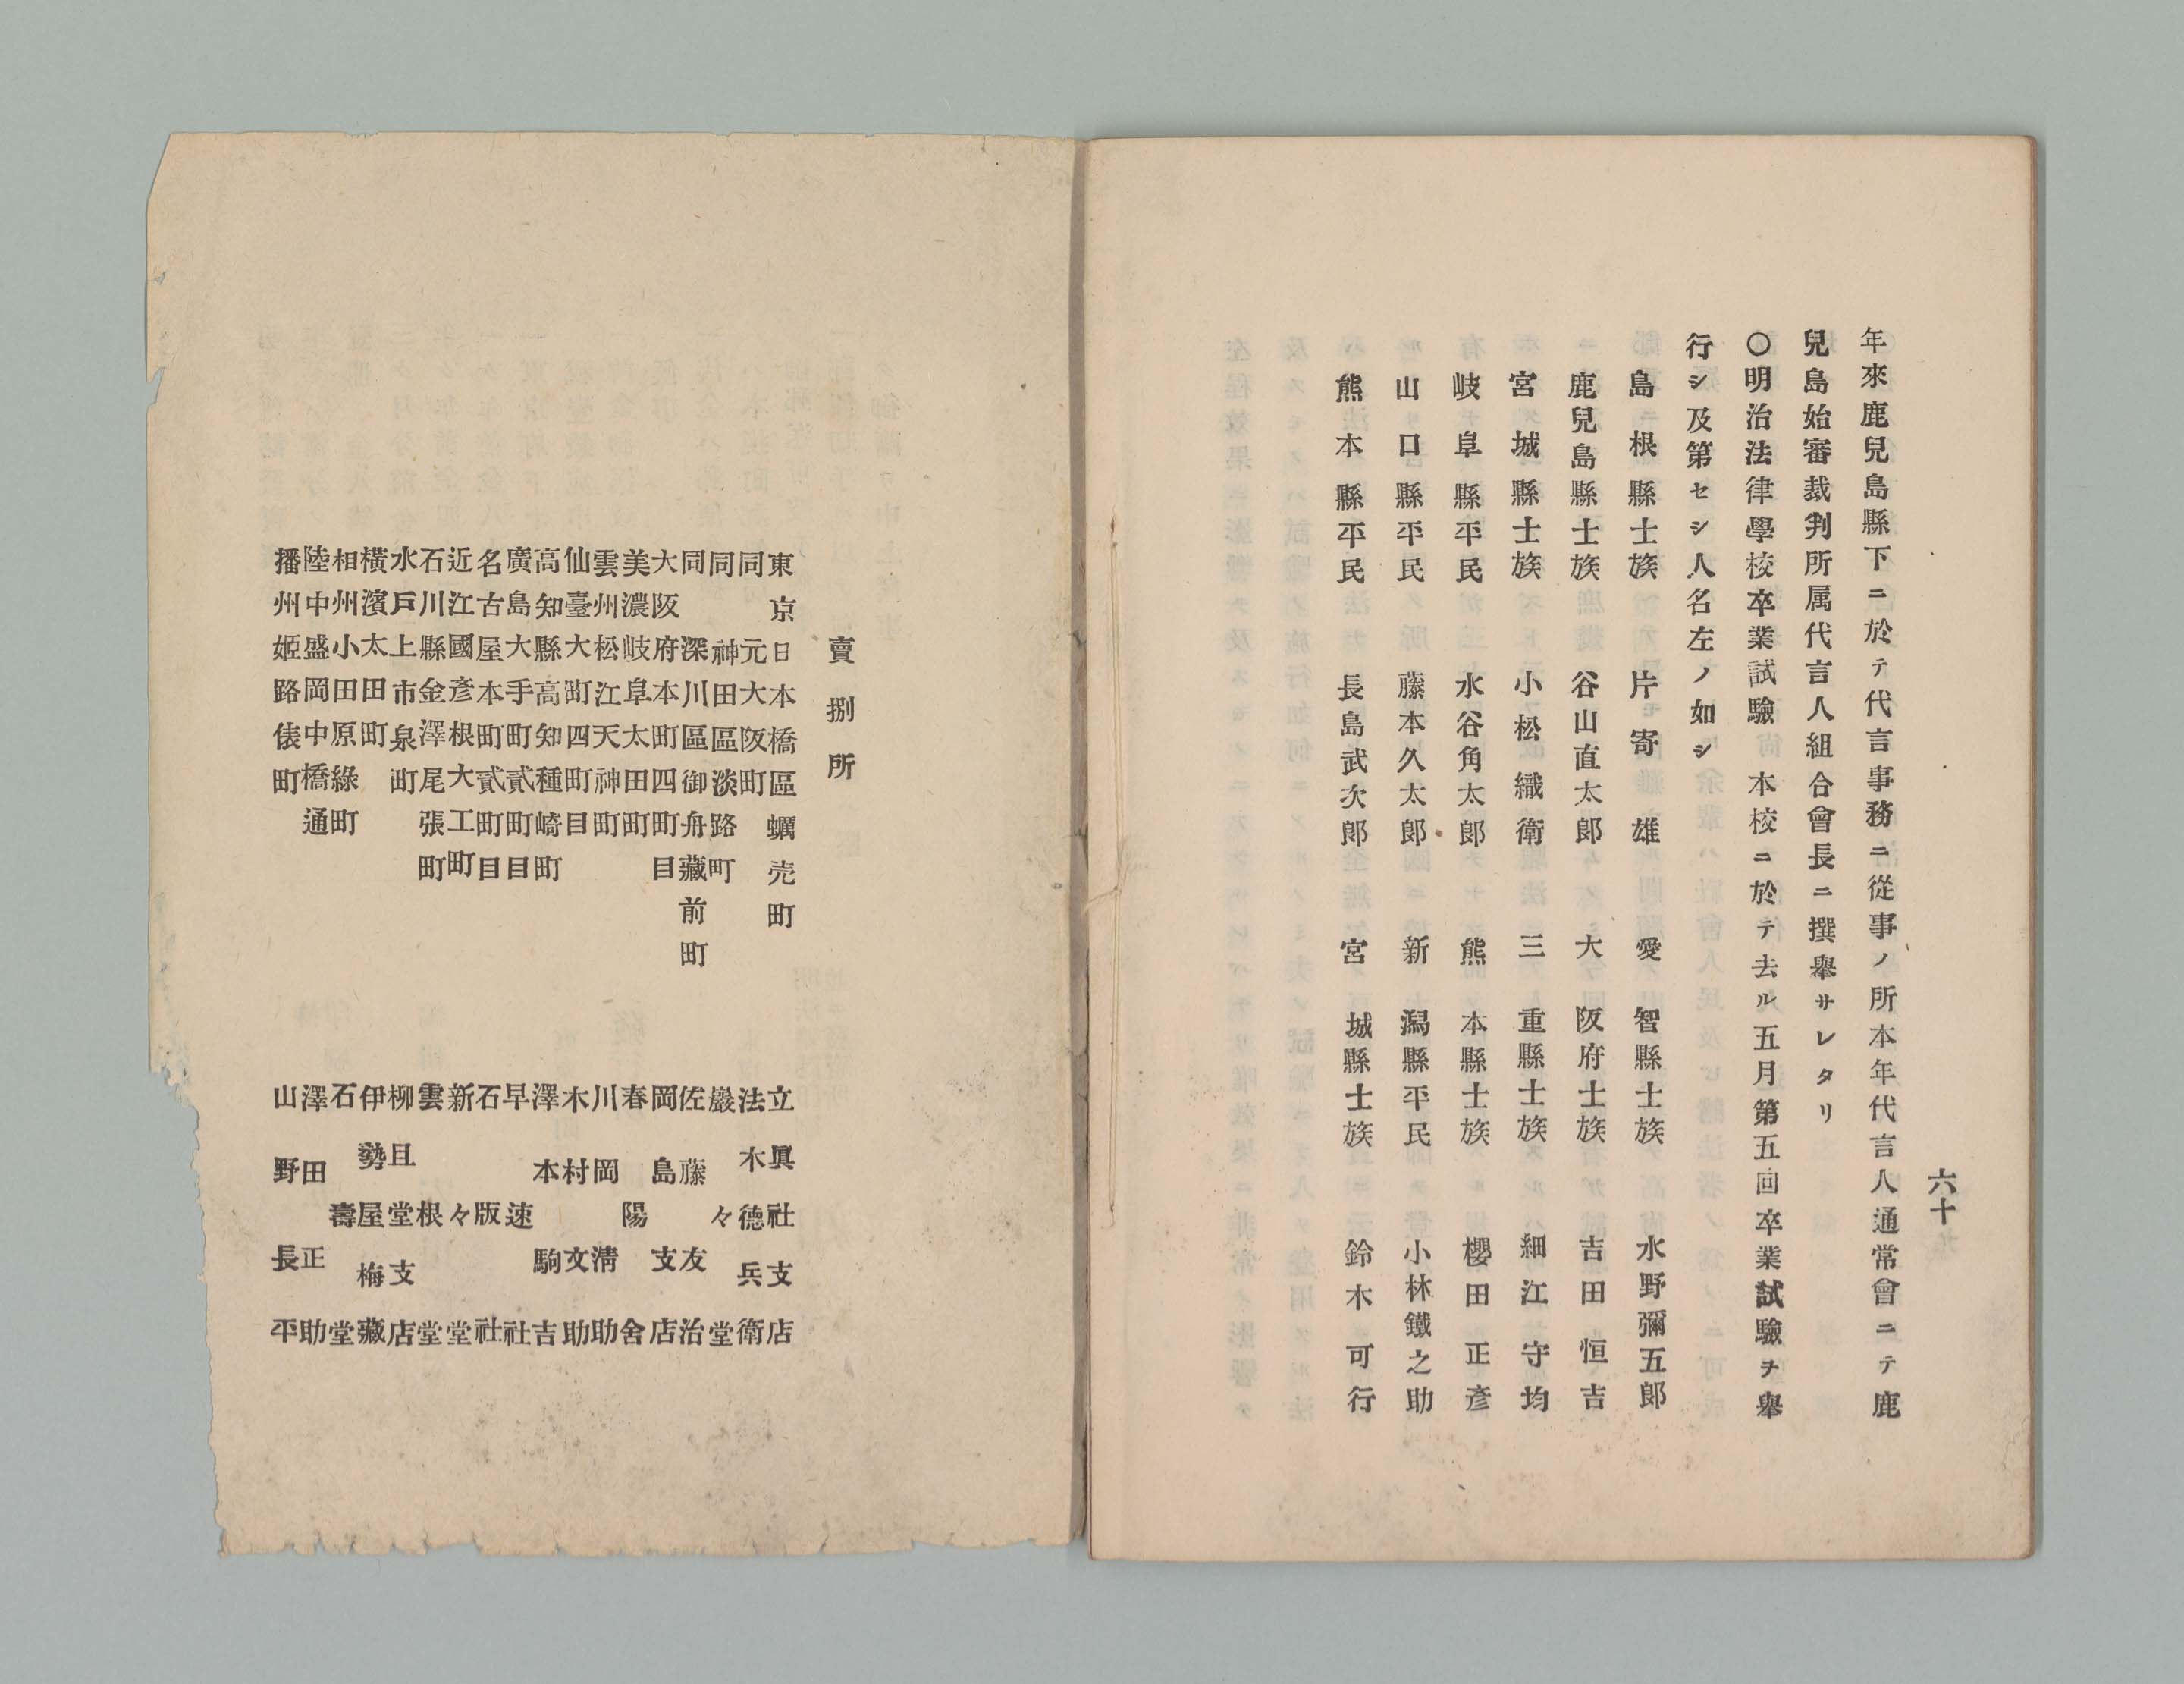 六十
年來鹿兒島縣下ニ於テ代言事務ニ從事ノ所本年代言人通常會ニテ鹿
兒島始審裁判所属代言人組合會長ニ撰擧サレタリ
○明治法律學校卒業試驗 本校ニ於テ去ル五月第五回卒業試驗ヲ擧
行シ及第セシ人名左ノ如シ
島根縣士族 片寄雄 愛智縣士族 水野彌五郎
鹿兒島縣士族 谷山直太郎 大阪府士族 吉田恒吉
宮城縣士族 小松織衛 三重縣士族 細江守均
岐阜縣平民 水谷角太郎 熊本縣士族 櫻田正彥
山口縣平民 藤本久太郎 新潟縣平民 小林鐵之助
熊本縣平民 長島武次郎 宮城縣士族 鈴木可行
賣捌所
東京日本橋區蠣売町 立眞社支店
同元大阪町 法木德兵衛
同神田區淡路町 巖々堂
同深川區御舟藏前町 佐藤友治
大阪府本町四町目 岡島支店
美濃岐阜太田町 春陽舍
雲州松江天神町 川岡淸助
仙臺大町四町目 木村文助
高知縣高知種崎町 澤本駒吉
廣島大手町貳町目 早速社
名古屋本町貳町目 石版社
近江國彥根大工町 新々堂
石川縣金澤尾張町 雲根堂
水戶上市泉町 柳旦堂支店
橫濱太田町 伊勢屋梅藏
相州小田原綠町 石壽堂
陸中盛岡中橋通 澤田正助
播州姬路俵町 山野長平